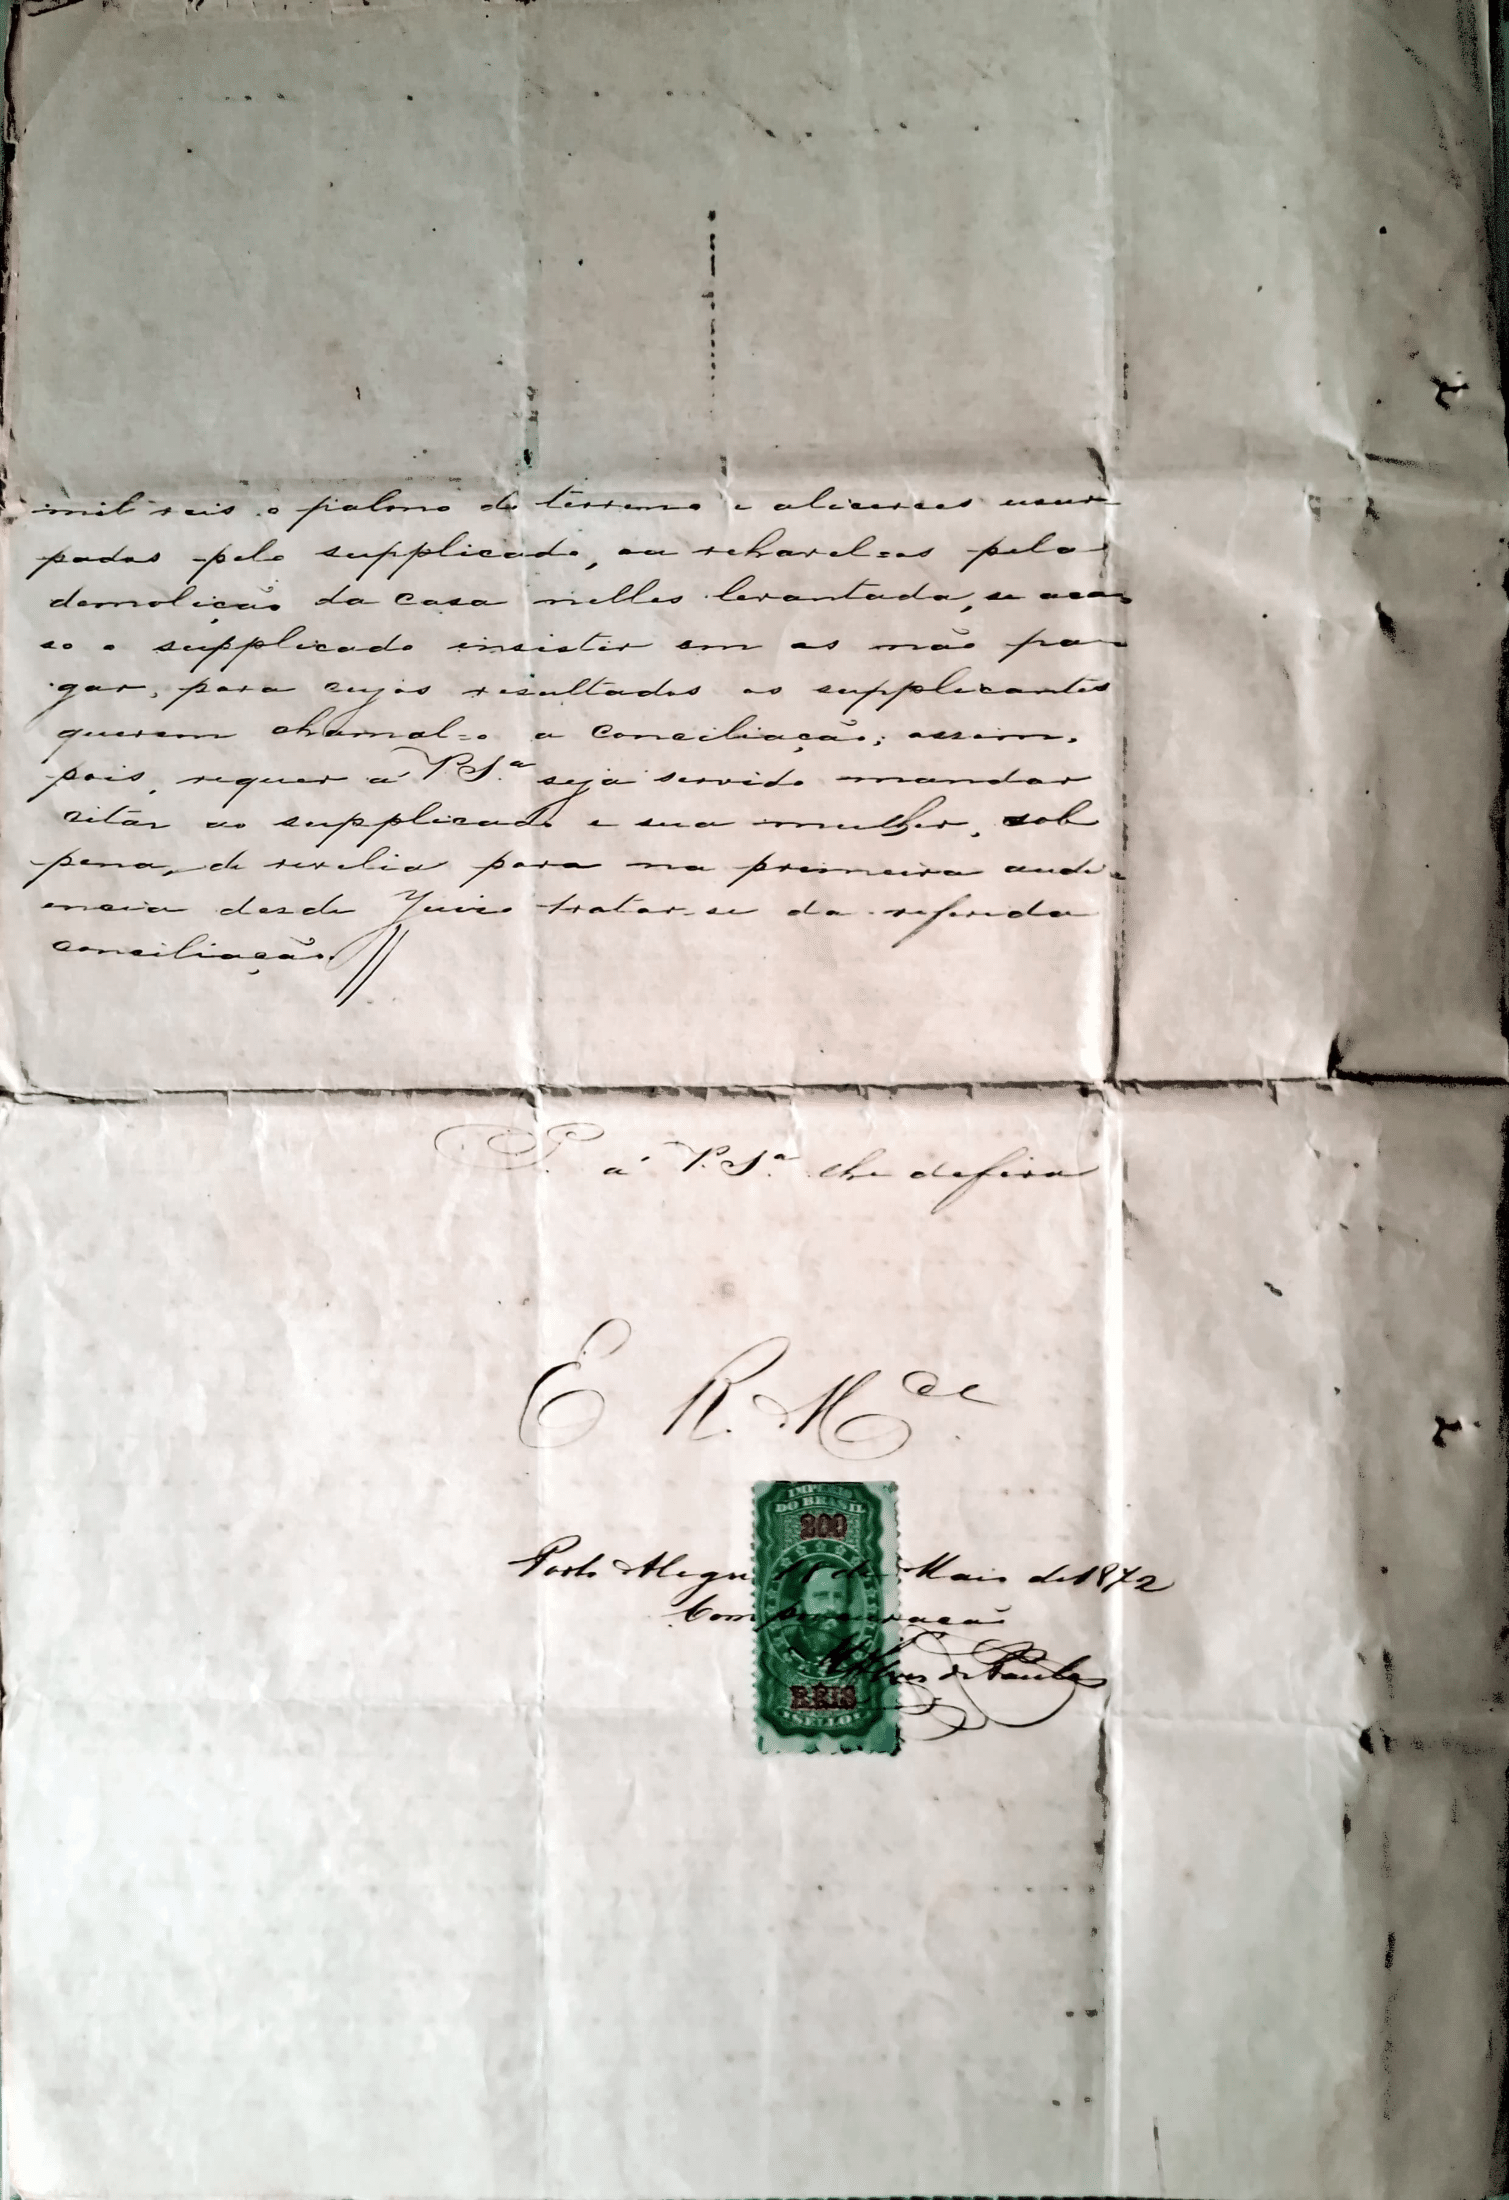 mil reis o palmo de terreno e alicerces usur
pados pelo supplicado, ou rehavel=os pela
demolição da casa nelles levantada, se aca
so o supplicado insistir em os não pa
gar, para cujos resultados os supplicantes
querem chamal=o a conciliação; assim,
pois, requer a V.S.ª seja servido mandar
citar ao supplicado e sua mulher, sob
pena, de revelia para na primeira audi
encia deste Juizo tratar-se da referida
conciliação.//
P. a V.S.ª lhe defira
E R. M.ce
IMPERIO
DO BRASIL
200
Porto Alegre 18 de Maio de 1872
Com procuração
Alves de Paula
RÉIS
SELLO